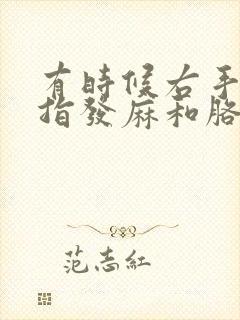 有時候右手
指發麻和胳
范志紅